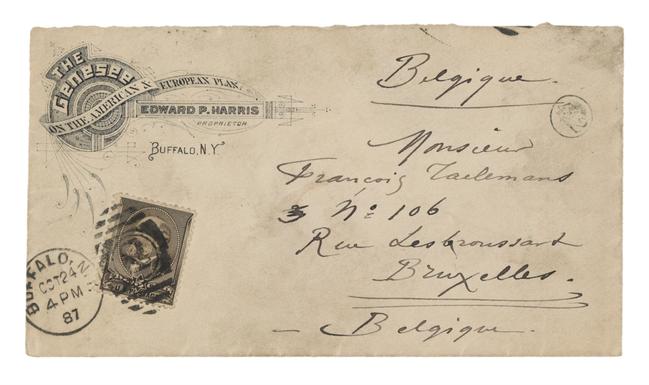 THE
Genesee
ON THE AMERICAN & EUROPEAN PLAN.
EDWARD P. HARRIS
PROPRIETOR
BUFFALO, N.Y.
BUFFALO, N.
OCT 24
4 PM
87
Belgique.
Monsieur
François Taelemans
No: 106
Rue Lesbroussart
Bruxelles.
Belgique.